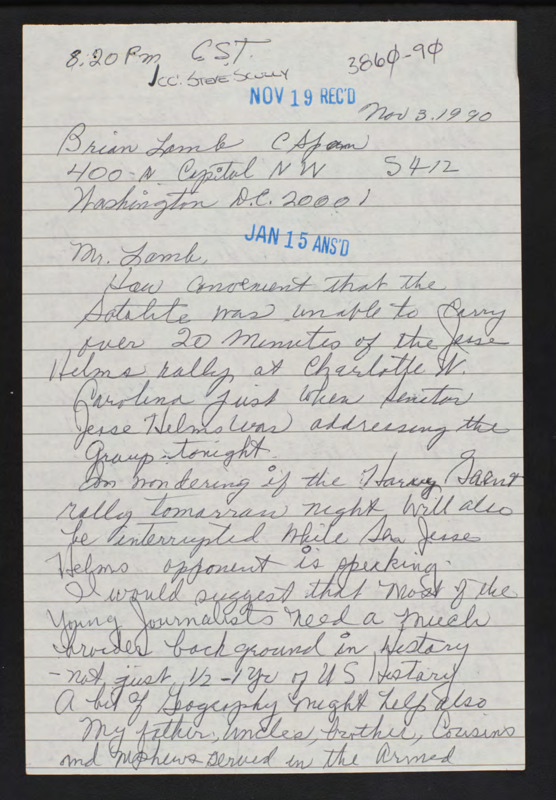 8:20 Pm CST.
CC: STEVE SCULLY
386φ-9φ
NOV 19 REC'D
Nov 3.1990
Brian Lamb C Span
400-N Capitol NW S412
Washington D.C. 20001
JAN 15 ANS'D
Mr. Lamb,
How convenient that the
Satalite was unable to carry
over 20 minutes of the Jesse
Helms rally at Charlotte N.
Carolina just when Senator
Jesse Helms was addressing the
Group tonight.
Im wondering if the Harvey Gannt
rally tomarrow night will also
be interrupted while Sen Jesse
Helms opponent is speaking.
I would suggest that most of the
Young Journalists need a much
broider background in history
- not just 1/2 - 1 Yr of US History
A bit of Geography might help also
My father, uncles, brother, Cousins
and nephews served in the Armed